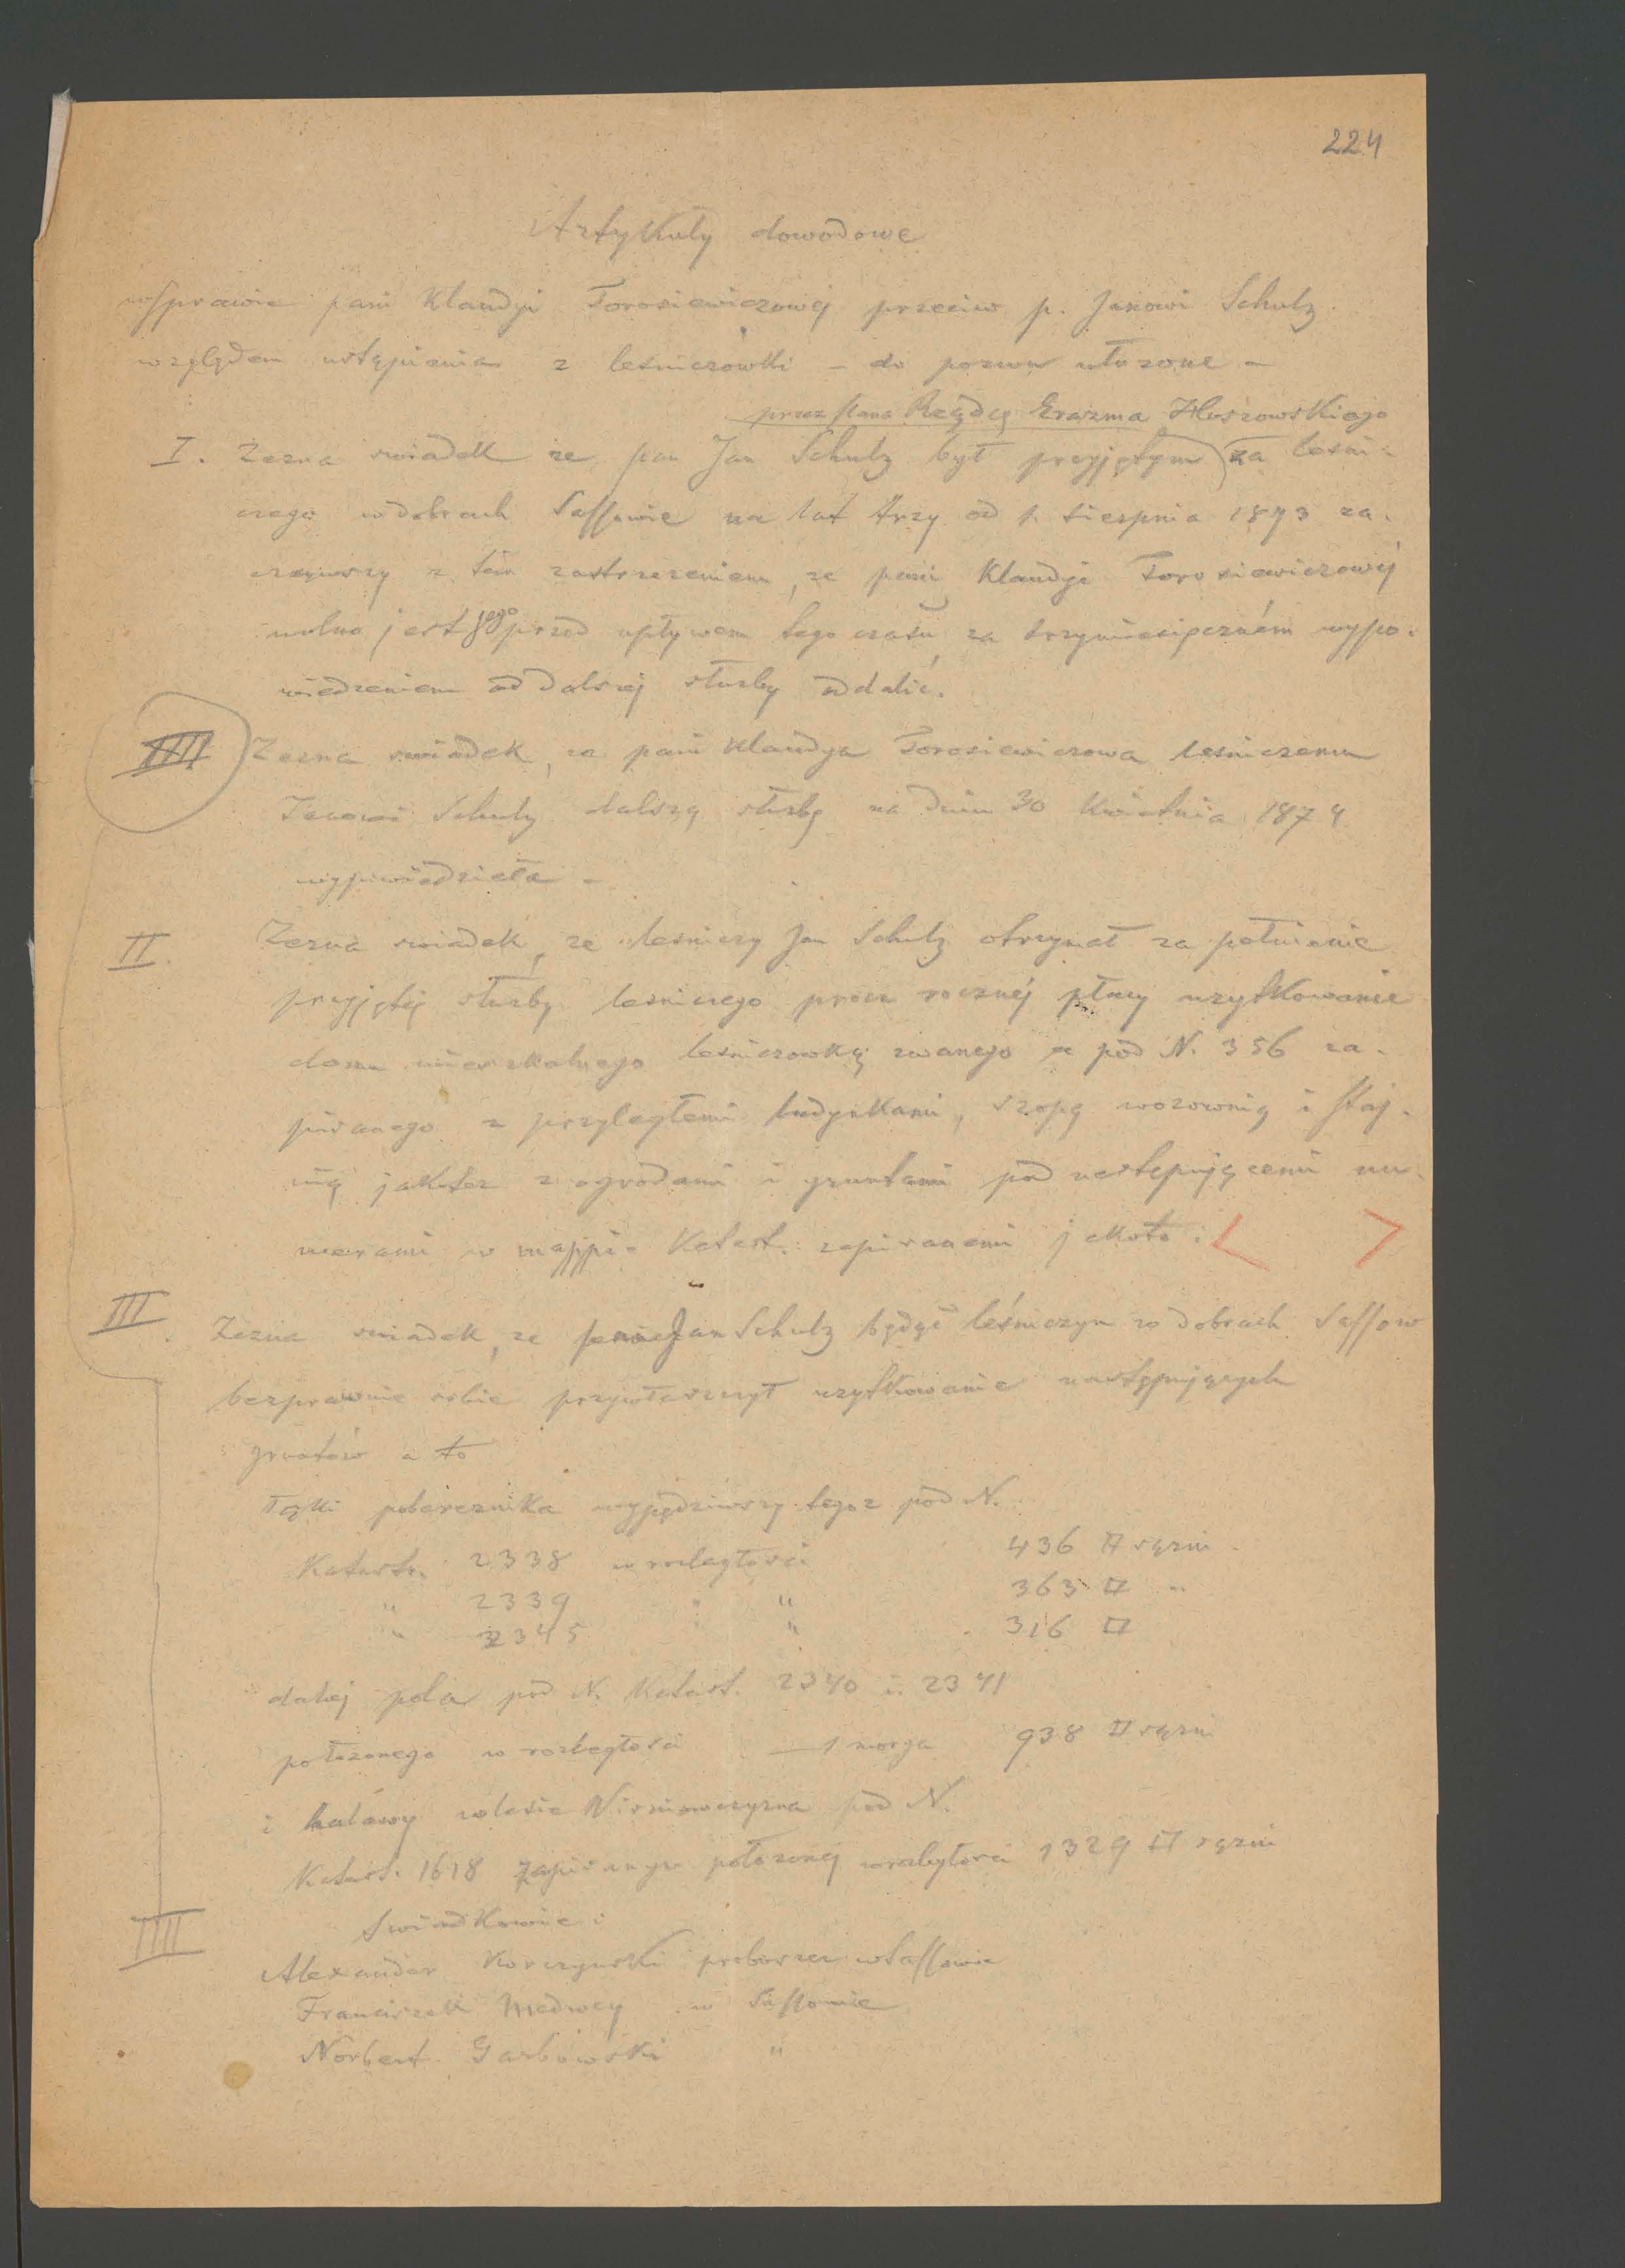 224
Artykuły dowodowe
w sprawie pani Klaudyi Torosiewiczowej przeciw p. Janowi Schulz
względem ustąpienia z leśniczówki – do pozwu ułożone –
przez Pana Rządcę Erazma
I. Zezna swiadek że pan Jan Schulz był przyjętym za leśni-
czego w dobrach Sassowie na lat trzy od 1. sierpnia 1873 za-
cząwszy z tem zastrzeżeniem, że pani Klaudyi Torosiewiczowej
wolno jest jego przed upływem tego czasu za trzymiesięczném wypo-
wiedzeniem od dalszej służby oddalić.
IIII Zezna swiadek, że pani Klaudya Torosiewiczowa leśniczemu
Janowi Schulz dalszą służbę na dniu 30 Kwietnia 1874
wypowiedziała –
II. Zezna swiadek, że leśniczy Jan Schulz otrzymał za pełnienie
przyjętej służby leśniczego procz rocznej płacy użytkowanie
domu mieszkalnego leśniczowką zwanego a pod N. 356 za-
pisanego z przyległemi budynkami, szopą wozownią i staj-
nią jakotez z ogrodami i gruntami pod następującemi nu-
merami w mappie Katast. zapisanemi jakoto: < >
III. Zezna swiadek, że Jan Schulz będąc leśniczym w dobrach Sassow
bezprawnie sobie przywłaszczył użytkowanie następujących
gruntów a to
Łąki pobereznika wypędziwszy tegoz pod N.
Katastr. 2338 w rozległości 436 □ sązni
" 2339 " 363 □ "
" 2345 " 316 □
dalej pola pod N. Katast. 2340 i 2341
położonego w rozległości 1 morga 938 □ sązni
i haławy w lesie pod N.
Katast. 1618 położonej w rozległości 1329 □ sązni
IIII Swiadkowie:
Alexander Korczynski proboszcz w Sassowie
Franciszek Medwey w Sassowie
Norbert Garbowski "